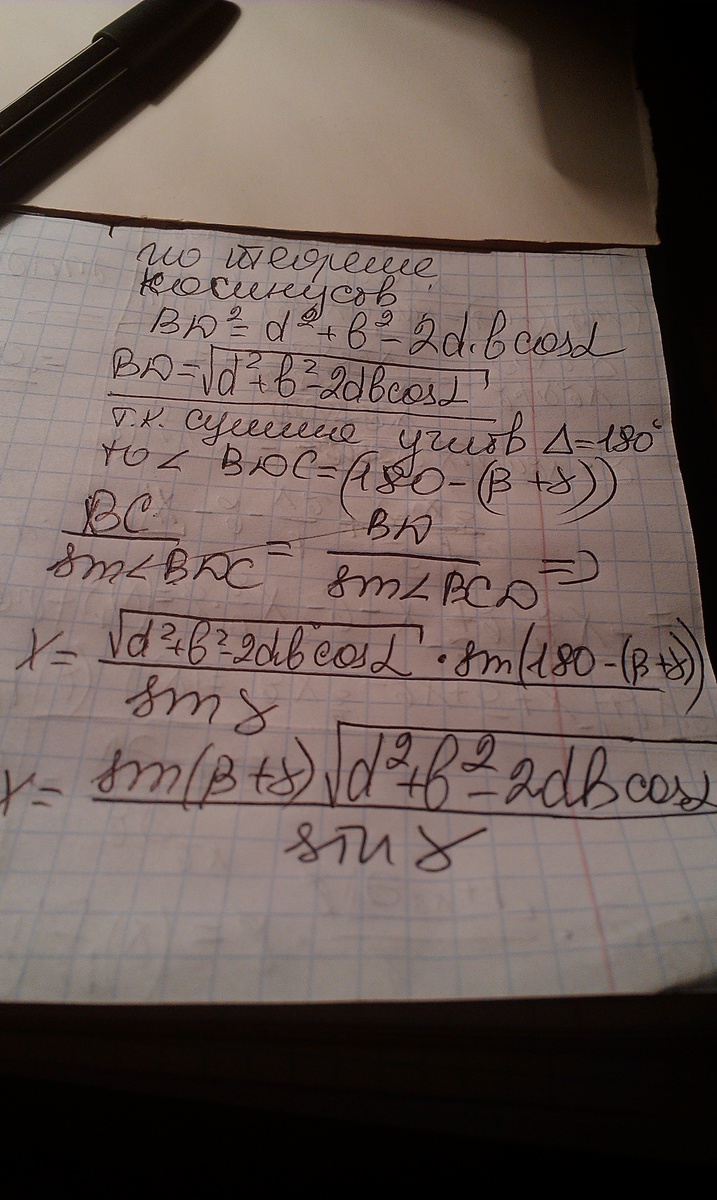 по теореме
косинусов
BD²=d²+b²-2d·bcosα
BD=√d²+b²-2dbcosα
т.к. сумма углов Δ=180°
то ∠ BDC=(180-(β+γ))
BC/sin∠BDC = BD/sin∠BCD =>
x= √d²+b²-2dbcosα · sin(180-(β+γ)) / sin γ
x= sin(β+γ)√d²+b²-2dbcosα / sin γ